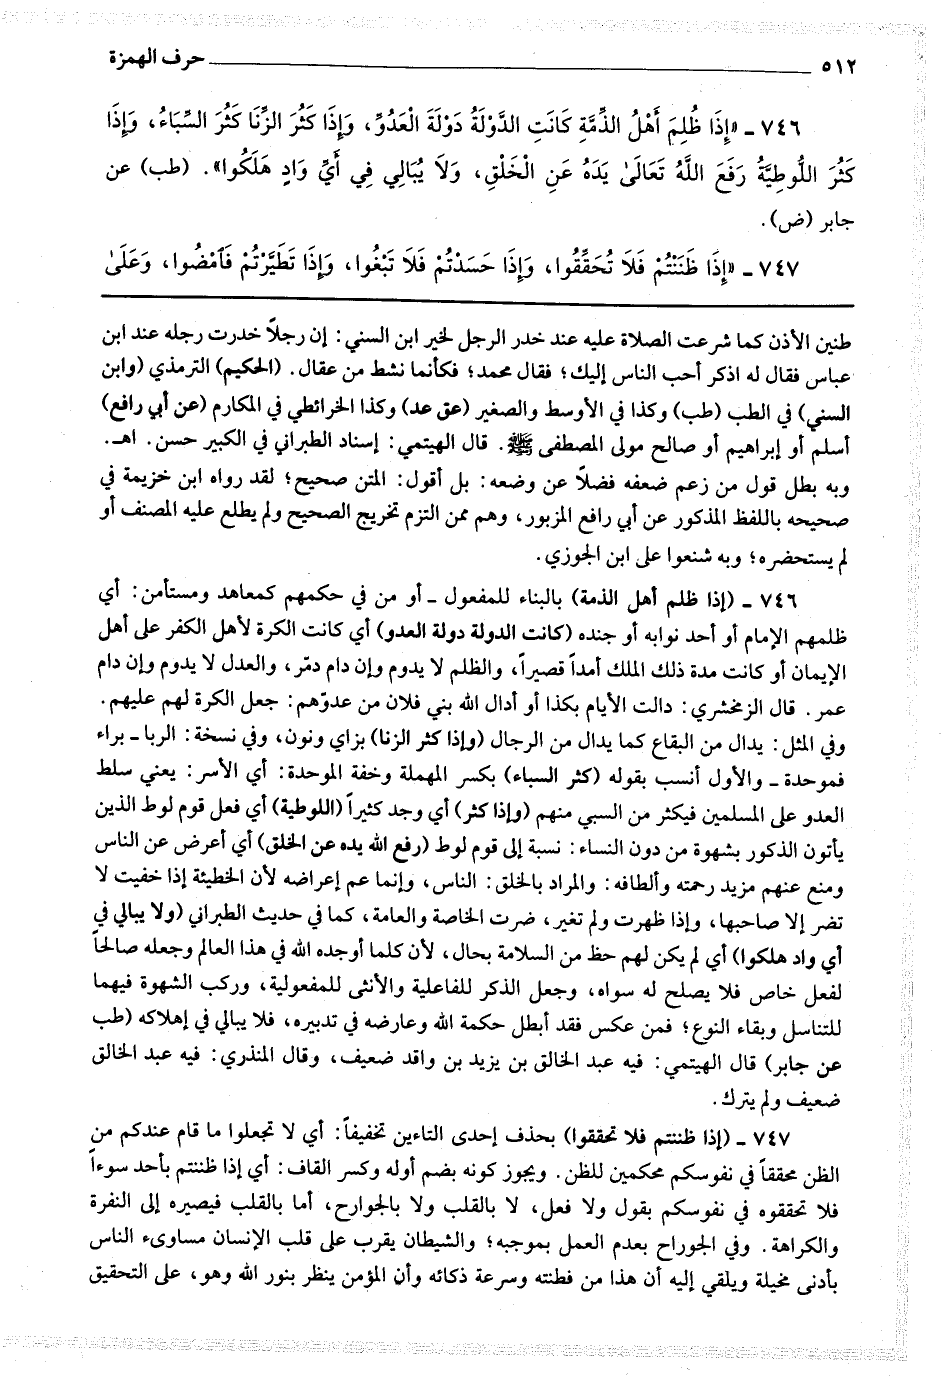 ٥١٢ ــــــــــــــــــــــــــــــــــــــــ حرف الهمزة
٧٤٦ ـ «إِذَا ظُلِمَ أَهْلُ الذِّمَّةِ كَانَتِ الدَّوْلَةُ دَوْلَةَ الْعَدُوِّ، وَإِذَا كَثُرَ الزِّنَا كَثُرَ السِّبَاءُ، وَإِذَا
كَثُرَ اللُّوطِيَّةُ رَفَعَ اللَّهُ تَعَالَىٰ يَدَهُ عَنِ الْخَلْقِ، وَلَا يُبَالِي فِي أَيِّ وَادٍ هَلَكُوا». (طب) عن
جابر (ض).
٧٤٧ ـ «إِذَا ظَنَنْتُمْ فَلَا تُحَقِّقُوا، وَإِذَا حَسَدْتُمْ فَلَا تَبْغُوا، وَإِذَا تَطَيَّرْتُمْ فَٱمْضُوا، وَعَلَىٰ
طنين الأذن كما شرعت الصلاة عليه عند خدر الرجل لخبر ابن السني: إن رجلاً خدرت رجله عند ابن
عباس فقال له اذكر أحب الناس إليك؛ فقال محمد؛ فكأنما نشط من عقال. (الحكيم) الترمذي (وابن
السني) في الطب (طب) وكذا في الأوسط والصغير (عق عد) وكذا الخرائطي في المكارم (عن أبي رافع)
أسلم أو إبراهيم أو صالح مولى المصطفى ﷺ. قال الهيتمي: إسناد الطبراني في الكبير حسن. اهـ.
وبه بطل قول من زعم ضعفه فضلاً عن وضعه: بل أقول: المتن صحيح؛ لقد رواه ابن خزيمة في
صحيحه باللفظ المذكور عن أبي رافع المزبور، وهم ممن التزم تخريج الصحيح ولم يطلع عليه المصنف أو
لم يستحضره؛ وبه شنعوا على ابن الجوزي.
٧٤٦ ـ (إذا ظلم أهل الذمة) بالبناء للمفعول ـ أو من في حكمهم كمعاهد ومستأمن: أي
ظلمهم الإمام أو أحد نوابه أو جنده (كانت الدولة دولة العدو) أي كانت الكرة لأهل الكفر على أهل
الإيمان أو كانت مدة ذلك الملك أمداً قصيراً، والظلم لا يدوم وإن دام دمّر، والعدل لا يدوم وإن دام
عمر. قال الزمخشري: دالت الأيام بكذا أو أدال الله بني فلان من عدوّهم: جعل الكرة لهم عليهم.
وفي المثل: يدال من البقاع كما يدال من الرجال (وإذا كثر الزنا) بزاي ونون، وفي نسخة: الربا ـ براء
فموحدة ـ والأول أنسب بقوله (كثر السباء) بكسر المهملة وخفة الموحدة: أي الأسر: يعني سلط
العدو على المسلمين فيكثر من السبي منهم (وإذا كثر) أي وجد كثيراً (اللوطية) أي فعل قوم لوط الذين
يأتون الذكور بشهوة من دون النساء: نسبة إلى قوم لوط (رفع الله يده عن الخلق) أي أعرض عن الناس
ومنع عنهم مزيد رحمته وألطافه: والمراد بالخلق: الناس، وإنما عم إعراضه لأن الخطيئة إذا خفيت لا
تضر إلا صاحبها، وإذا ظهرت ولم تغير، ضرت الخاصة والعامة، كما في حديث الطبراني (ولا يبالي في
أي واد هلكوا) أي لم يكن لهم حظ من السلامة بحال، لأن كلما أوجده الله في هذا العالم وجعله صالحاً
لفعل خاص فلا يصلح له سواه، وجعل الذكر للفاعلية والأنثى للمفعولية، وركب الشهوة فيهما
للتناسل وبقاء النوع؛ فمن عكس فقد أبطل حكمة الله وعارضه في تدبيره، فلا يبالي في إهلاكه (طب
عن جابر) قال الهيتمي: فيه عبد الخالق بن يزيد بن واقد ضعيف، وقال المنذري: فيه عبد الخالق
ضعيف ولم يترك.
٧٤٧ ـ (إذا ظننتم فلا تحققوا) بحذف إحدى التاءين تخفيفاً: أي لا تجعلوا ما قام عندكم من
الظن محققاً في نفوسكم محكمين للظن. ويجوز كونه بضم أوله وكسر القاف: أي إذا ظننتم بأحد سوءاً
فلا تحققوه في نفوسكم بقول ولا فعل، لا بالقلب ولا بالجوارح، أما بالقلب فيصيره إلى النفرة
والكراهة. وفي الجوراح بعدم العمل بموجبه؛ والشيطان يقرب على قلب الإنسان مساوىء الناس
بأدنى مخيلة ويلقي إليه أن هذا من فطنته وسرعة ذكائه وأن المؤمن ينظر بنور الله وهو، على التحقيق